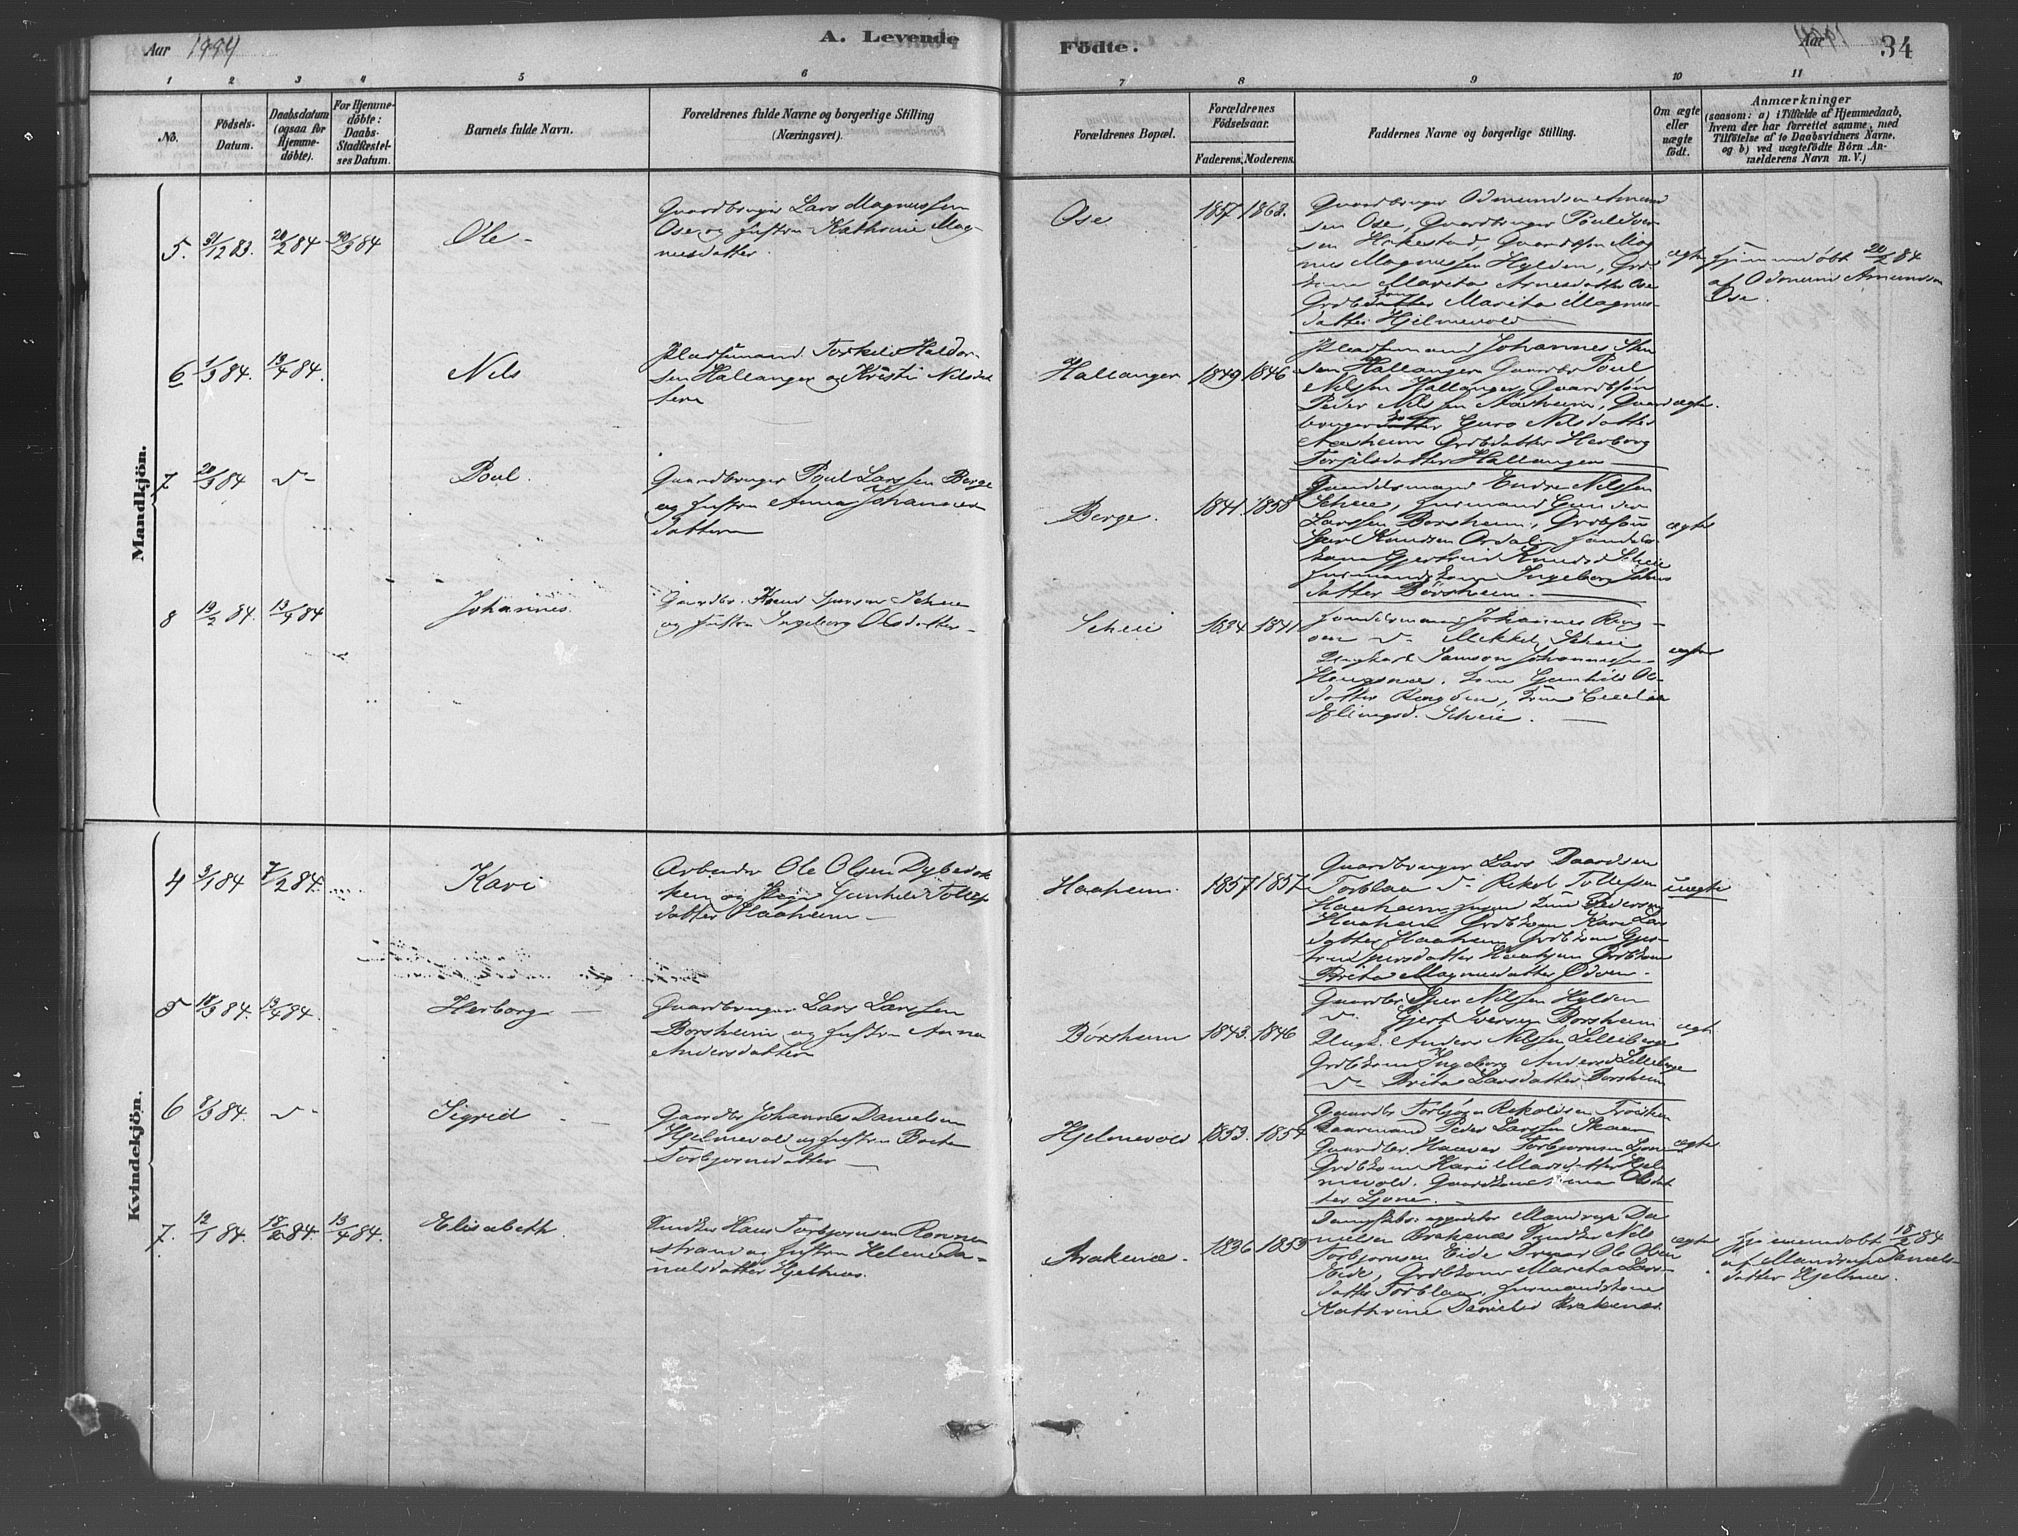 Aar 1884
A. Levende
Fødte.
Aar 1884
34
1 2 3 4 5 6 7 8 9 10 11
No.
Fødsels-
Datum.
Daabsdatum
(ogsaa for
Hjemme-
døbte).
For Hjemme-
døbte:
Daabs-
Stadfæstel-
ses Datum.
Barnets fulde Navn.
Forældrenes fulde Navne og borgerlige Stilling
(Næringsvei).
Forældrenes Bopæl.
Forældrenes
Fødselsaar.
Faderens. Moderens.
Faddernes Navne og borgerlige Stilling.
Om ægte
eller
uægte
født.
Anmærkninger
(saasom: a) i Tilfælde af Hjemmedaab,
hvem der har forrettet samme, med
Tilføielse af to Daabsvidners Navne,
og b) ved uægtefødte Børn .An-
melderens Navn m. V.)
Mandkjøn.
5. 31/12 83. 20/2 84 30/3 84
Ole
Gaardbruger Lars Magnussen
Ose og hustru Kathrine Mag
nusdatter
Ose
1857 1863.
Gaardbruger Odmund Amund
sen Ose, Gaardbruger Poul Iver
sen Hakestad, Gaardbsøn Mag
nus Magnussen Hylden, Grb
kone Marita Arnesdatter Ose
Grdbkone Marita Magnus-
datter Hjelmevold
ægte
hjemmedøbt 20/2 84
af Odmund Amundsen
Ose.
6 1/3 84. 13/4 84.
Nils
Pladsemand Torkild Haldor-
sen Hallanger og Kristi Nilsdat
tera
Hallanger
1849 1846
Pladsemand Johannes
sen Hallanger Gaardbr Poul
Nilsen Hallanger, Gaardbsøn
Peder Nilssen Næsheim, Gaard
brugerkone Guro Nilsdatter
Næsheim Grdbdatter Herborg
Torkilsdatter Hallanger
ægte.
7 20/3 84
Poul.
Gaardbruger Poul Larssen Berge
og hustru Anna Johannes
datter
Berge.
1841. 1858
Handelsmand Endre Nilsen
Scheie, husmand Gunder
Larssen Børsheim, Grdbsøn
Sjur Knudsen Ardal, handels
kone Gjertrud Knudsd Scheie
husmandskone Ingeborg
datter Børsheim.
ægte
8 19/2 84. 13/4 84
Johannes.
Gaardbr. Knud Sjursen Scheie
og hustru Ingeborg Olsdatter
Scheie
1834 1841
Handelsmand Johannes Ring-
øen Mikkel Scheie
Ungkarl Samson Johannesse
Haugsnæs. Kone Gunhild Ols-
datter Ringøen, Kone Cecilia
Scheie.
ægte
Kvindekjøn.
4 3/1 84 7/2 84.
Kari
Arbeider Ole Olsen
og Pige Gunhild Tollefs
datter Haaheim
Haaheim.
1857 1857
Gaardbruger Lars Daardsen
Torblaa Rikol Tollefsen
Haaheim Pedersen
Haaheim Grdbkone Kari Lars
datter Haaheim Grdbkone Gjer-
trud Sjursdatter Haaheim Grdbkone
Brita Magnusdatter
uægte
5 18/3 84. 13/4 84.
Herborg
Gaardbruger Lars Larssen
Børsheim og hustru Anna
Andersdatter
Børsheim
1843. 1846
Gaardbr Sjur Nilssen Hylden
Gjert Iversen Børsheim
Ungk. Anders Nilssen Lilleberge
Grdbkone Ingeborg Andersd Lilleberge
Brita Larsdatter Børsheim
ægte
6 8/3 84.
Sigrid
Gaardbr Johannes Danielsen
Hjelmevold og hustru Brita
Torbjørnsdatter
Hjelmevold
1853. 1854
Gaardbr Torbjørn Rikoldsen
Peder Larssen Skaar
Gaardbr. Haaver Torbjørnsen Ljone
Grdbkone Kari Hjel
mevold. Gaardkone Olsdat
ter Ljone.
ægte
7. 12/1 84. 18/2 84 13/4 84.
Elisabeth.
Snedker Hans Torbjørnsen Rønne
strand og hustru Helene Da-
nielsdatter Hjeltnæs.
Brakenæs.
1836 1853
Mandrup Da
nielsen Brakenæs Snedker Nils
Torbjørnsen Eide Ole Olsen
Eide, Grdbkone Marita Lars-
datter Torblaa. husmandskone
Kathrine Danielsd Brakenæs.
ægte
hjemmedøbt 18/2 84
af Mandrup Daniels-
datter Hjeltnæs.